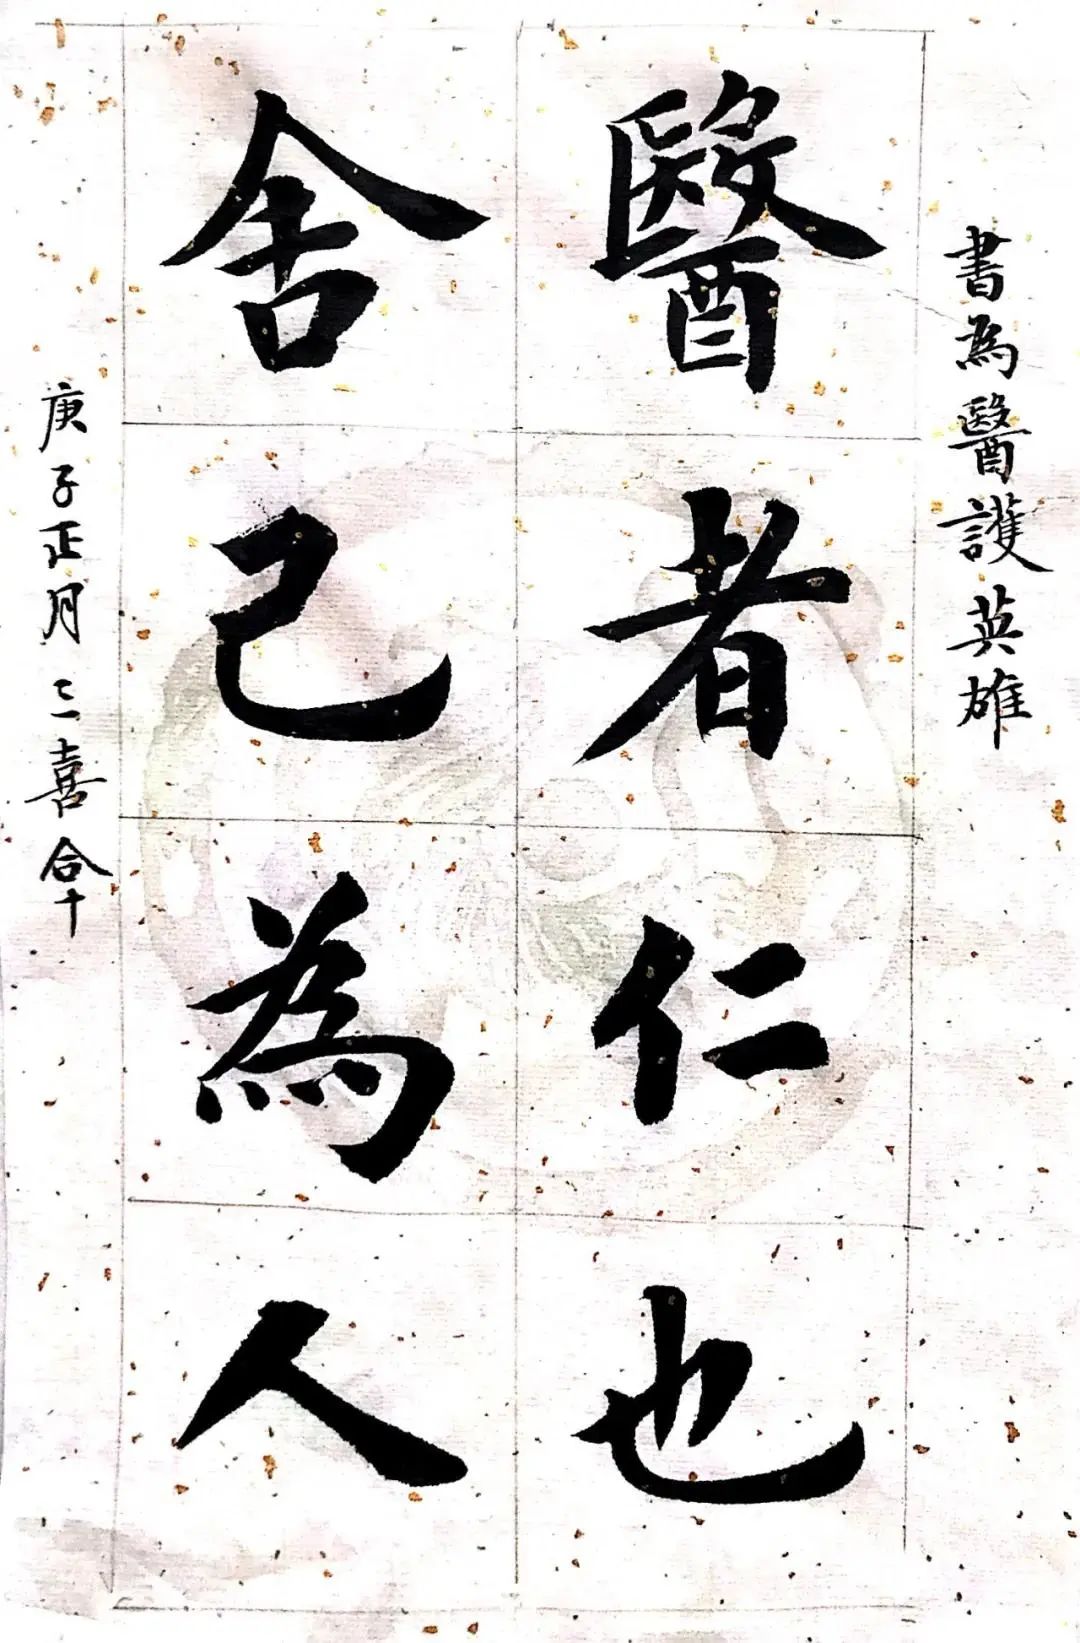 書為醫護英雄
醫者仁也
舍己為人
庚子正月三喜合十